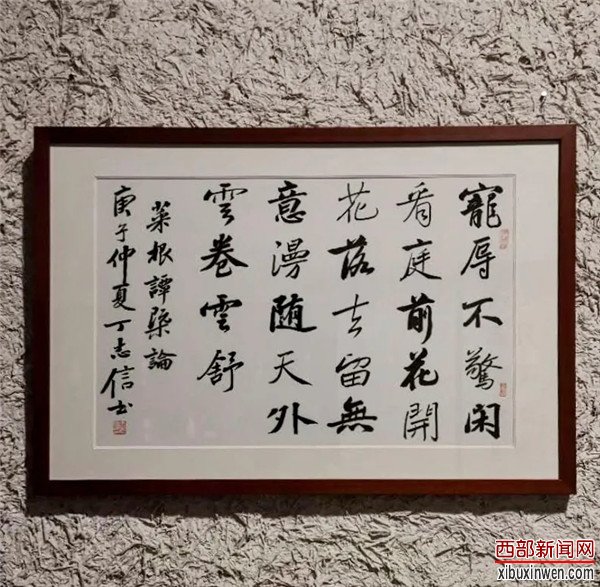 寵辱不驚閑
看庭前花開
花落去留無
意漫随天外
雲卷雲舒
菜根譚槩論
庚子仲夏丁志信书
西部新闻网
xibuxinwen.com